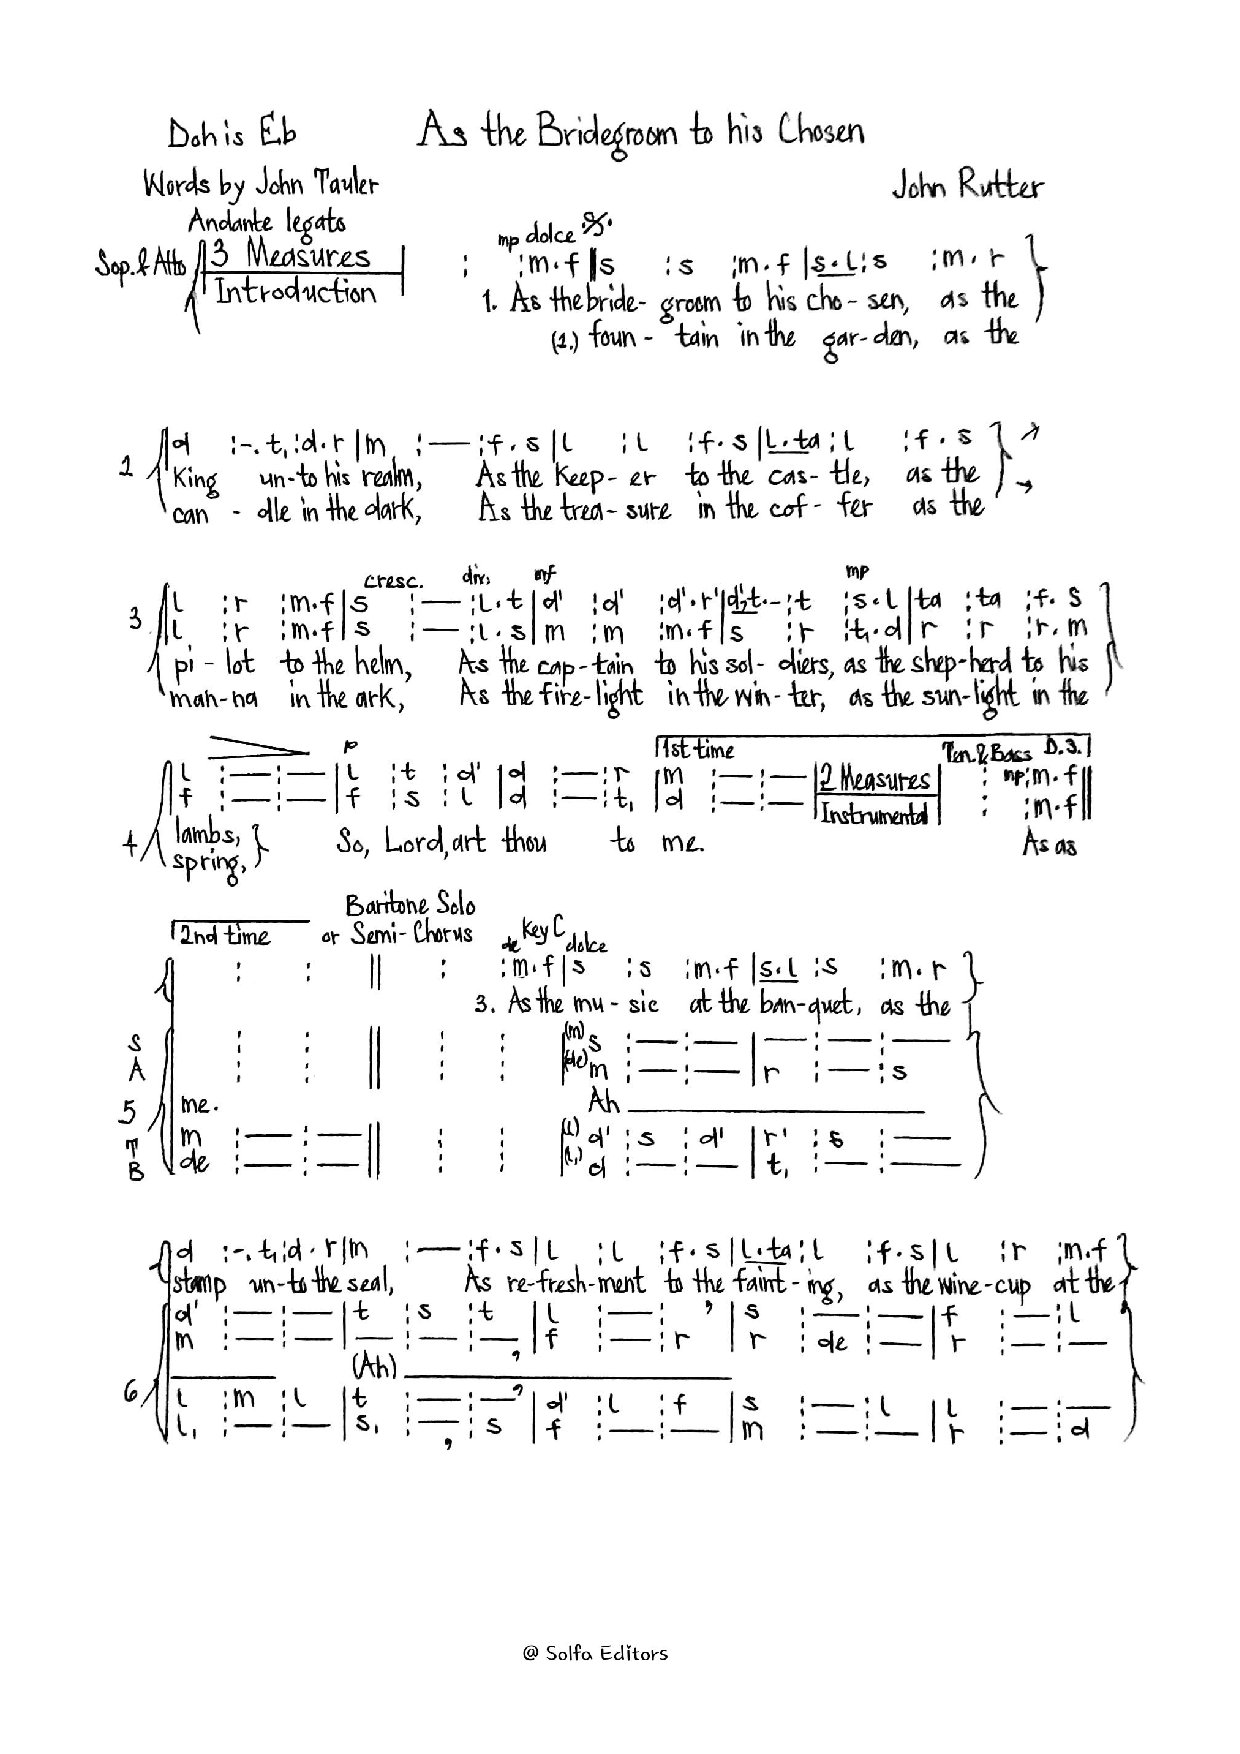 Doh is Eb As the Bridegroom to his Chosen
Words by John Tauler John Rutter
Andante legato
mp dolce
Sop. & Alto 3 Measures : :m.f |s :s :m.f |s.l :s :m.r
Introduction 1. As the bride- groom to his cho- sen, as the
(2.) foun- tain in the gar-den, as the
d :-.t, :d.r |m :— :f.s |l :l :f.s |l.ta :l :f.s
2 King un-to his realm, As the Keep- er to the cas- tle, as the
can - dle in the dark, As the trea- sure in the cof- fer as the
cresc. div. mf mp
3 l :r :m.f |s :— :l.t |d' :d' :d'.r' |d'.t.- :t :s.l |ta :ta :f.s
l :r :m.f |s :— :l.s |m :m :m.f |s :r :t,.d |r :r :r.m
pi - lot to the helm, As the cap-tain to his sol- diers, as the shep-herd to his
man-na in the ark, As the fire-light in the win- ter, as the sun-light in the
p 1st time Ten. & Bass D.S.
l :— :— |l :t :d' |d :— :r |m :— :— 2 Measures : mp :m.f
f :— :— |f :s :l |d :— :t, |d :— :— Instrumental : :m.f
4 lambs, So, Lord, art thou to me. As as
spring,
Baritone Solo
2nd time or Semi-Chorus de Key C dolce
: : || : :m.f |s :s :m.f |s.l :s :m.r
3. As the mu - sic at the ban-quet, as the
S : : || : : (m)s :— :— |— :— :—
A : : || : : (de)m :— :— |r :— :s
5 me. Ah
T m :— :— || : : (l)d' :s :d' |r' :s :—
B de :— :— || : : (l,)d :— :— |t, :— :—
d :-.t, :d.r |m :— :f.s |l :l :f.s |l.ta :l :f.s |l :r :m.f
stamp un-to the seal, As re-fresh-ment to the faint-ing, as the wine-cup at the
d' :— :— |t :s :t |l :— :— ' |s :— :— |f :— :l
m :— :— |— :— :—, |f :— :r |r :de :— |r :— :—
(Ah)
6 l :m :l |t :— :—' |d' :l :f |s :— :l |l :— :—
l, :— :— |s, :—, :s |f :— :— |m :— :— |r :— :d
@ Solfa Editors